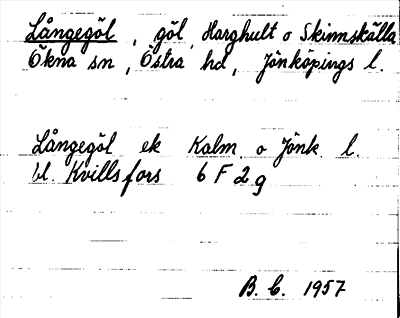 Långegöl, göl, Harghult o Skinnskälla
Ökna sn, Östra hd, Jönköpings l.
Långegöl ek Kalm. o Jönk. l.
bl. Kvillsfors 6 F 2 g
B. C. 1957